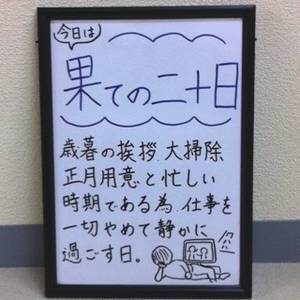 今日は
果ての二十日
歳暮の挨拶、大掃除
正月用意と忙しい
時期である為、仕事を
一切やめて静かに
過ごす日。